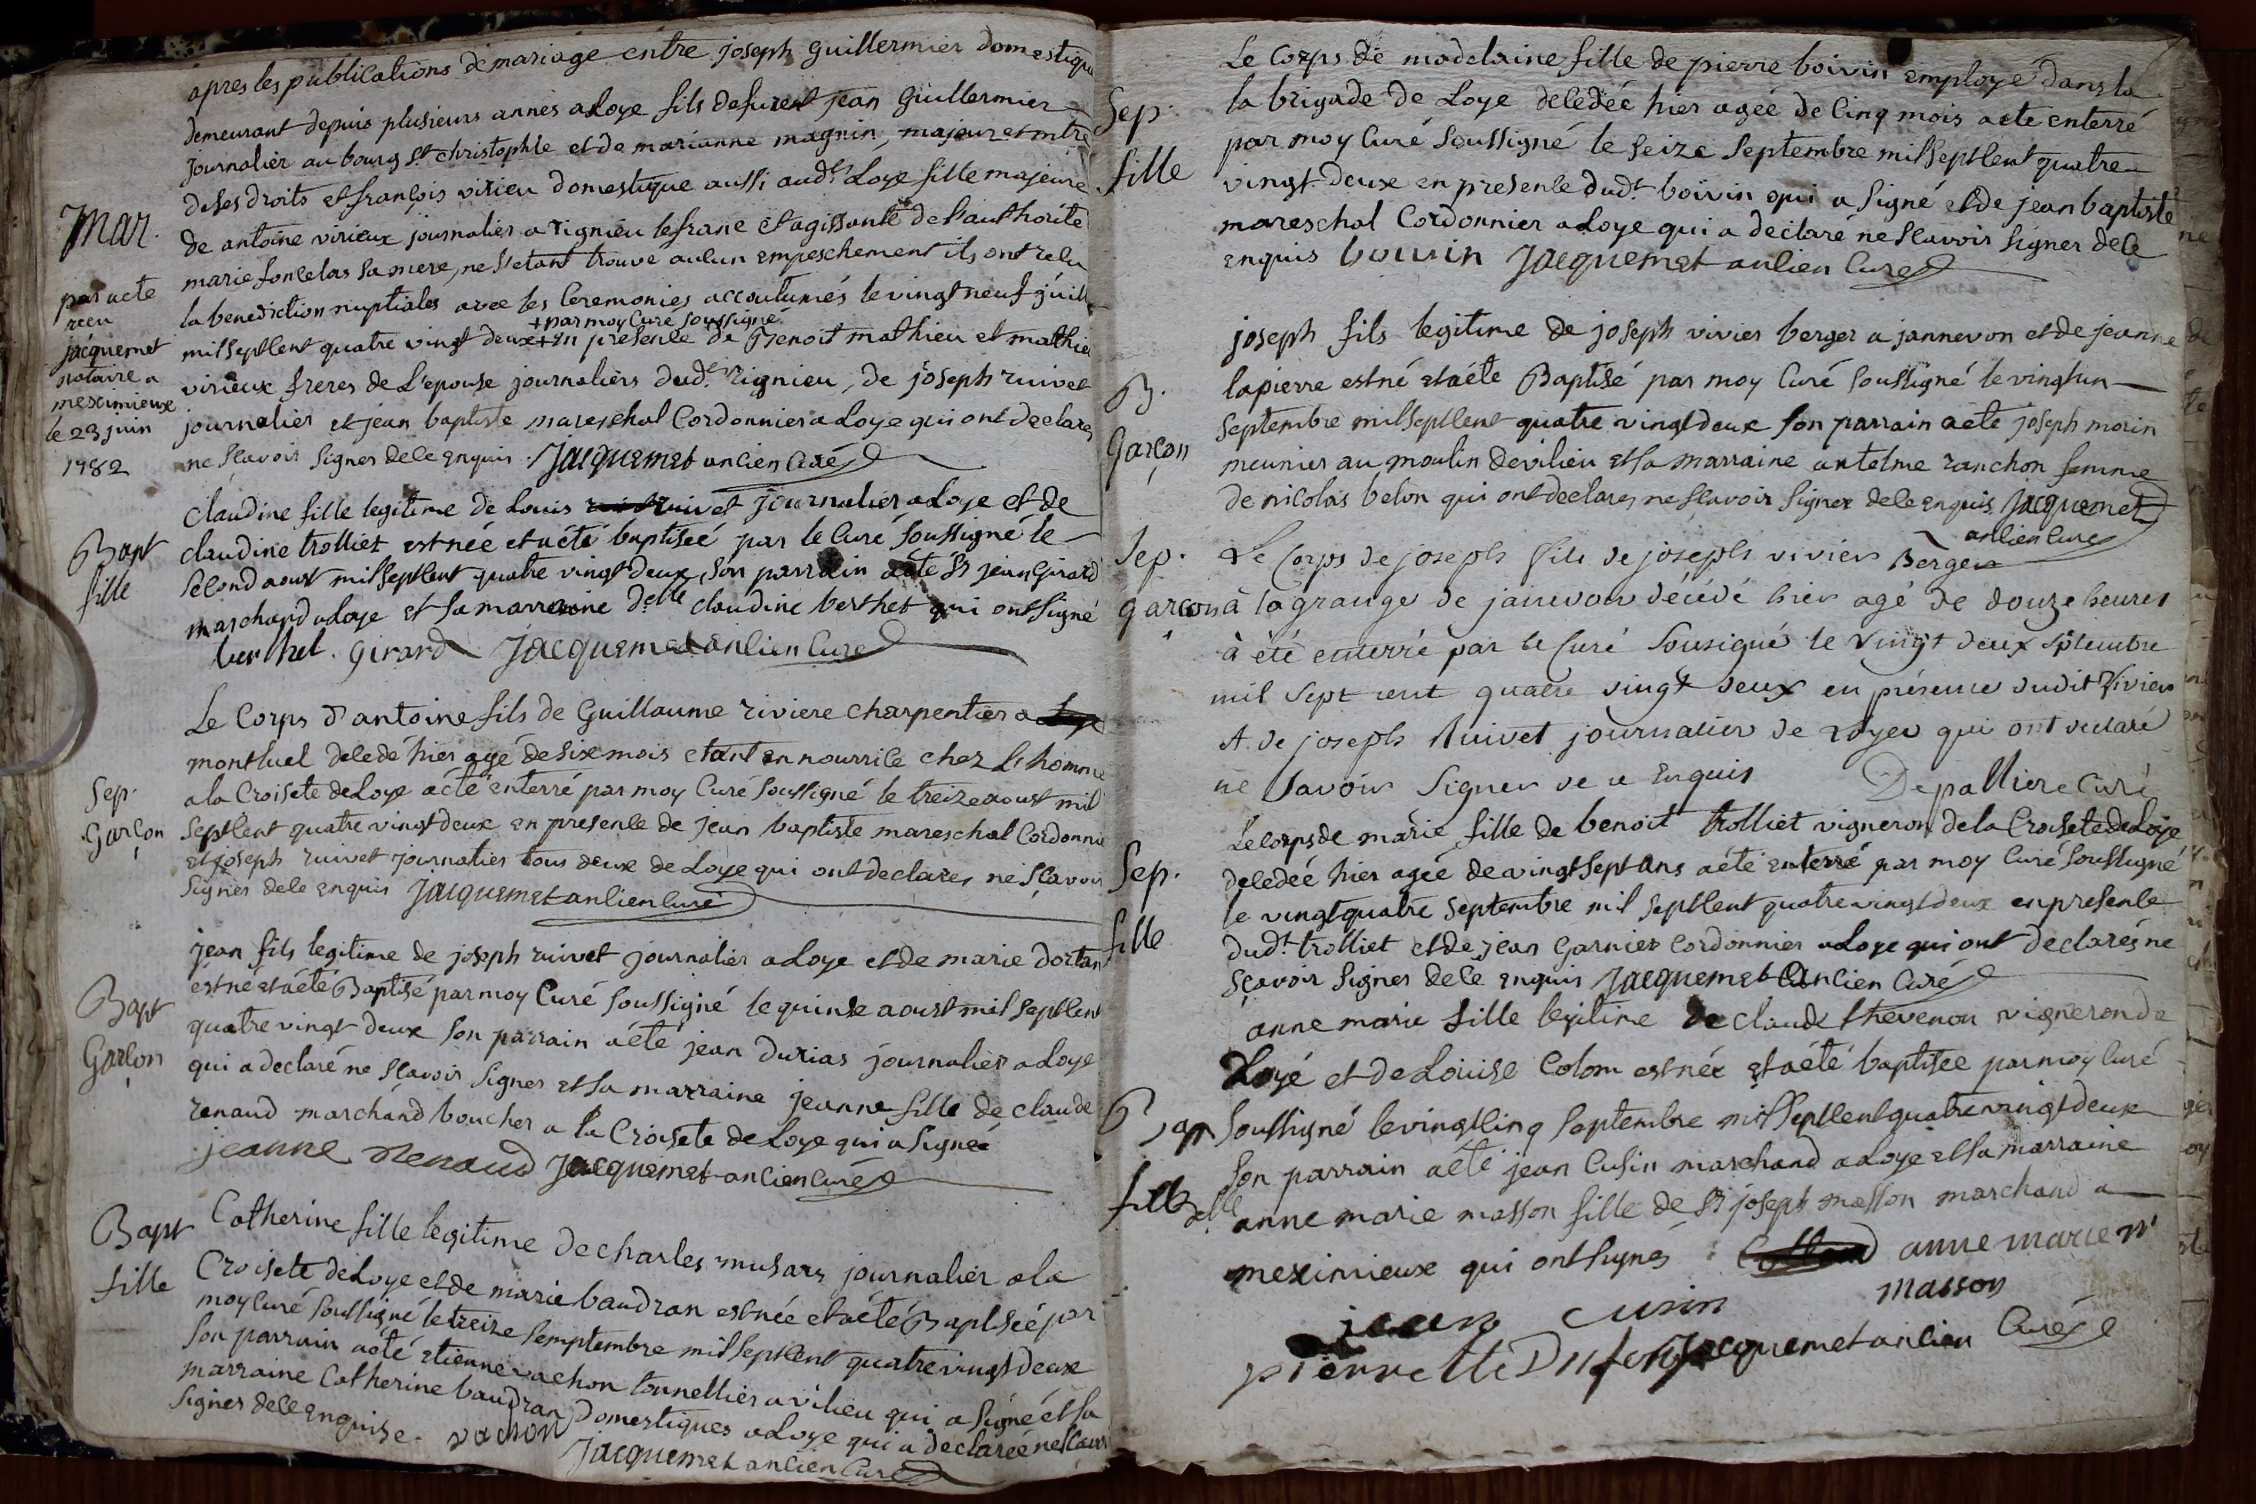 apres les publications de mariage entre joseph guillermier domestique
demeurant depuis plusieurs annés a Loye fils de furent jean Guillermier
journalier au bourg St christophle et de marianne magnin, majeur et mtre
de ses droits et françois virieu domestique aussi audt Loye fille majeure
de antoine virieux journalier a rignieu le franc et agissante de l'authorité
marie foncelas sa mere, ne s'etant trouvé aucun empeschement ils ont recu
la benediction nuptiales avec les Ceremonies accoutumés le vingt neuf juill
+ par moy Curé soussigné
mil septcent quatre vingt deux + en presence de Benoit mathieu et mathieu
virieux freres de L'epouse journaliers dudt Rignieu, de joseph ruivet
journalier et jean baptiste mareschal Cordonnier a Loye qui ont declares
ne scavoir signer de ce enquis. Jacquemet ancien Curé
Mar.
par acte
recu
jacquemet
notaire a
meximieux
le 23 juin
1782
Claudine fille legitime de Louis ruivet journalier a Loye et de
claudine trolliet est née et a été baptisée par le Curé soussigné le
second aoust mil septcent quatre vingt deux, son parrain a eté Sr jean Girard
marchand a Loye et sa marraine delle claudine berthet qui ont signé
berthet. Girard Jacquemet ancien Curé
Bapt
fille
Le Corps d'antoine fils de Guillaume riviere charpentier a Loye
montluel decedé hier agé de six mois etant en nourrice chez L'homme
a la Croisete de Loye a eté enterré par moy Curé soussigné le treize aoust mil
septcent quatre vingt deux en presence de jean baptiste mareschal Cordonnie
et joseph ruivet journalier tous deux de Loye qui ont declares ne scavoir
signer de ce enquis Jacquemet ancien Curé
Sep.
Garçon
jean fils legitime de joseph ruivet journalier a Loye et de marie dortan
est né et a eté Baptisé par moy Curé soussigné le quinze aoust mil septcent
quatre vingt deux son parrain a été jean durias journalier a Loye
qui a declaré ne scavoir signer et sa marraine jeanne fille de claude
renaud marchand boucher a la Croisete de Loye qui a signée
jeanne Renaud Jacquemet ancien Curé
Bapt
Garçon
Catherine fille legitime de charles musars journalier a la
Croisete de Loye et de marie baudran est née et a été Baptisée par
moy Curé soussigné le treize semptembre mil septcent quatre vingt deux
son parrain a été etienne vachon tonnellier a vilieu qui a signé et sa
marraine Catherine baudran Domestiques a Loye qui a declarée ne scavoir
signer de ce enquise. vachon
Jacquemet ancien Curé
Bapt
fille
Le Corps de madelaine fille de pierre boivin employé dans la
la brigade de Loye decedée hier agée de Cinq mois a ete enterré
par moy Curé soussigné le seize septembre mil septcent quatre
vingt-deux en presence dudt boivin qui a signé et de jean baptiste
mareschal Cordonnier a Loye qui a declaré ne scavoir signer de ce
enquis bouvin Jacquemet ancien Curé
Sep.
fille
joseph fils legitime de joseph vivier berger a jannevon et de jeanne
lapierre est né et a été Baptisé par moy Curé soussigné le vingt un
septembre mil septcent quatre vingt deux son parrain a eté joseph morin
meunier au moulin de vilieu et sa marraine antelme ranchon femme
de nicolas belon qui ont declares ne scavoir signer de ce enquis Jacquemet
ancien Curé
B.
Garçon
Le Corps de joseph fils de joseph vivier Berger
à la grange de janevon décédé hier agé de douze heures
à été enterré par le Curé soussigné le vingt deux septembre
mil sept cent quatre vingt deux en présence dudit Vivier
et de joseph Ruivet journalier de Loyes qui ont declaré
ne savoir signer de ce Enquis Depalliere Curé
Sep.
garçon
Le corps de marie fille de benoit trolliet vigneron de la Croisete de Loye
decedeé hier agée de vingt sept ans a été enterré par moy Curé soussigné
le vingt quatre septembre mil septcent quatre vingt deux en presence
dudt trolliet et de jean Garnier Cordonnier a Loye qui ont declarés ne
scavoir signer de ce enquis Jacquemet ancien Curé
Sep.
fille
anne marie fille legitime de claude thevenon vigneron de
Loye et de Louise Colom est née et a été baptisée par moy Curé
soussigné le vingt cinq septembre mil septcent quatre vingt deux
son parrain a été jean Cusin marchand a Loye et sa marraine
delle anne marie masson fille de Sr joseph masson marchand a
meximieux qui ont signés anne marie
masson
jean cusin
pierrette Jacquemet ancien Curé
Bap
fille